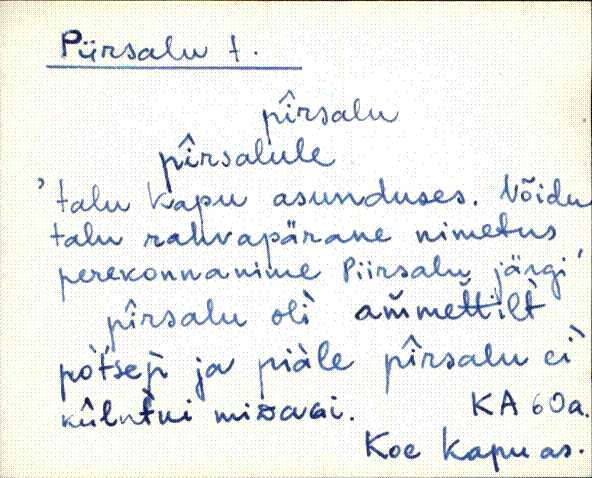 Piirsalu t.
pîrsalu
pîrsalule
' talu Kapu asunduses. Võidu
talu rahvapärane nimetus
perekonnanime Piirsalu järgi'
pîrsalu oli ammettilt
pòtsep ja piàle pîrsalu ei
KA 60a.
Koe Kapu as.